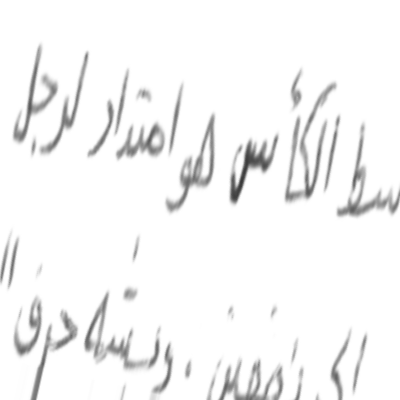 سط الكأس هو امتداد لرجل
إلى نصفين . ويشبه حرف "